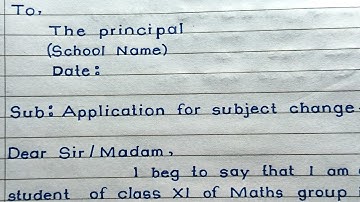 To,
The principal
(School Name)
Date:
Sub: Application for subject change.
Dear Sir/Madam,
I beg to say that I am a
student of class XI of Maths group